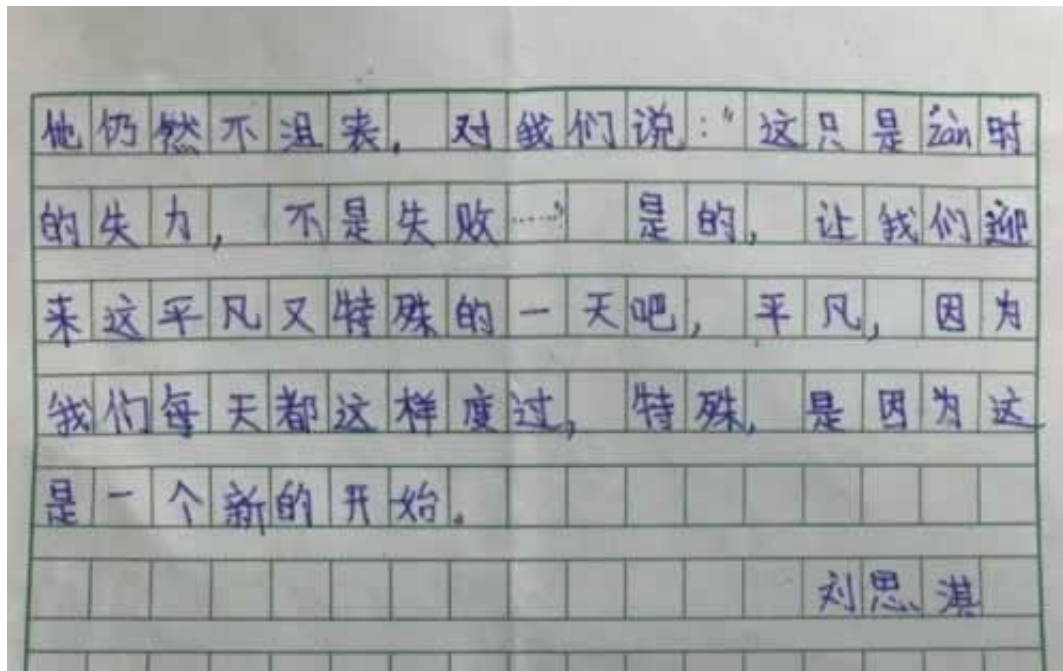 他仍然不沮丧，对我们说："这只是zàn时
的失力，不是失败……"是的，让我们迎
来这平凡又特殊的一天吧，平凡，因为
我们每天都这样度过，特殊，是因为这
是一个新的开始。
刘思淇